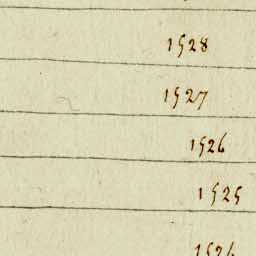 1528
1527
1526
1525